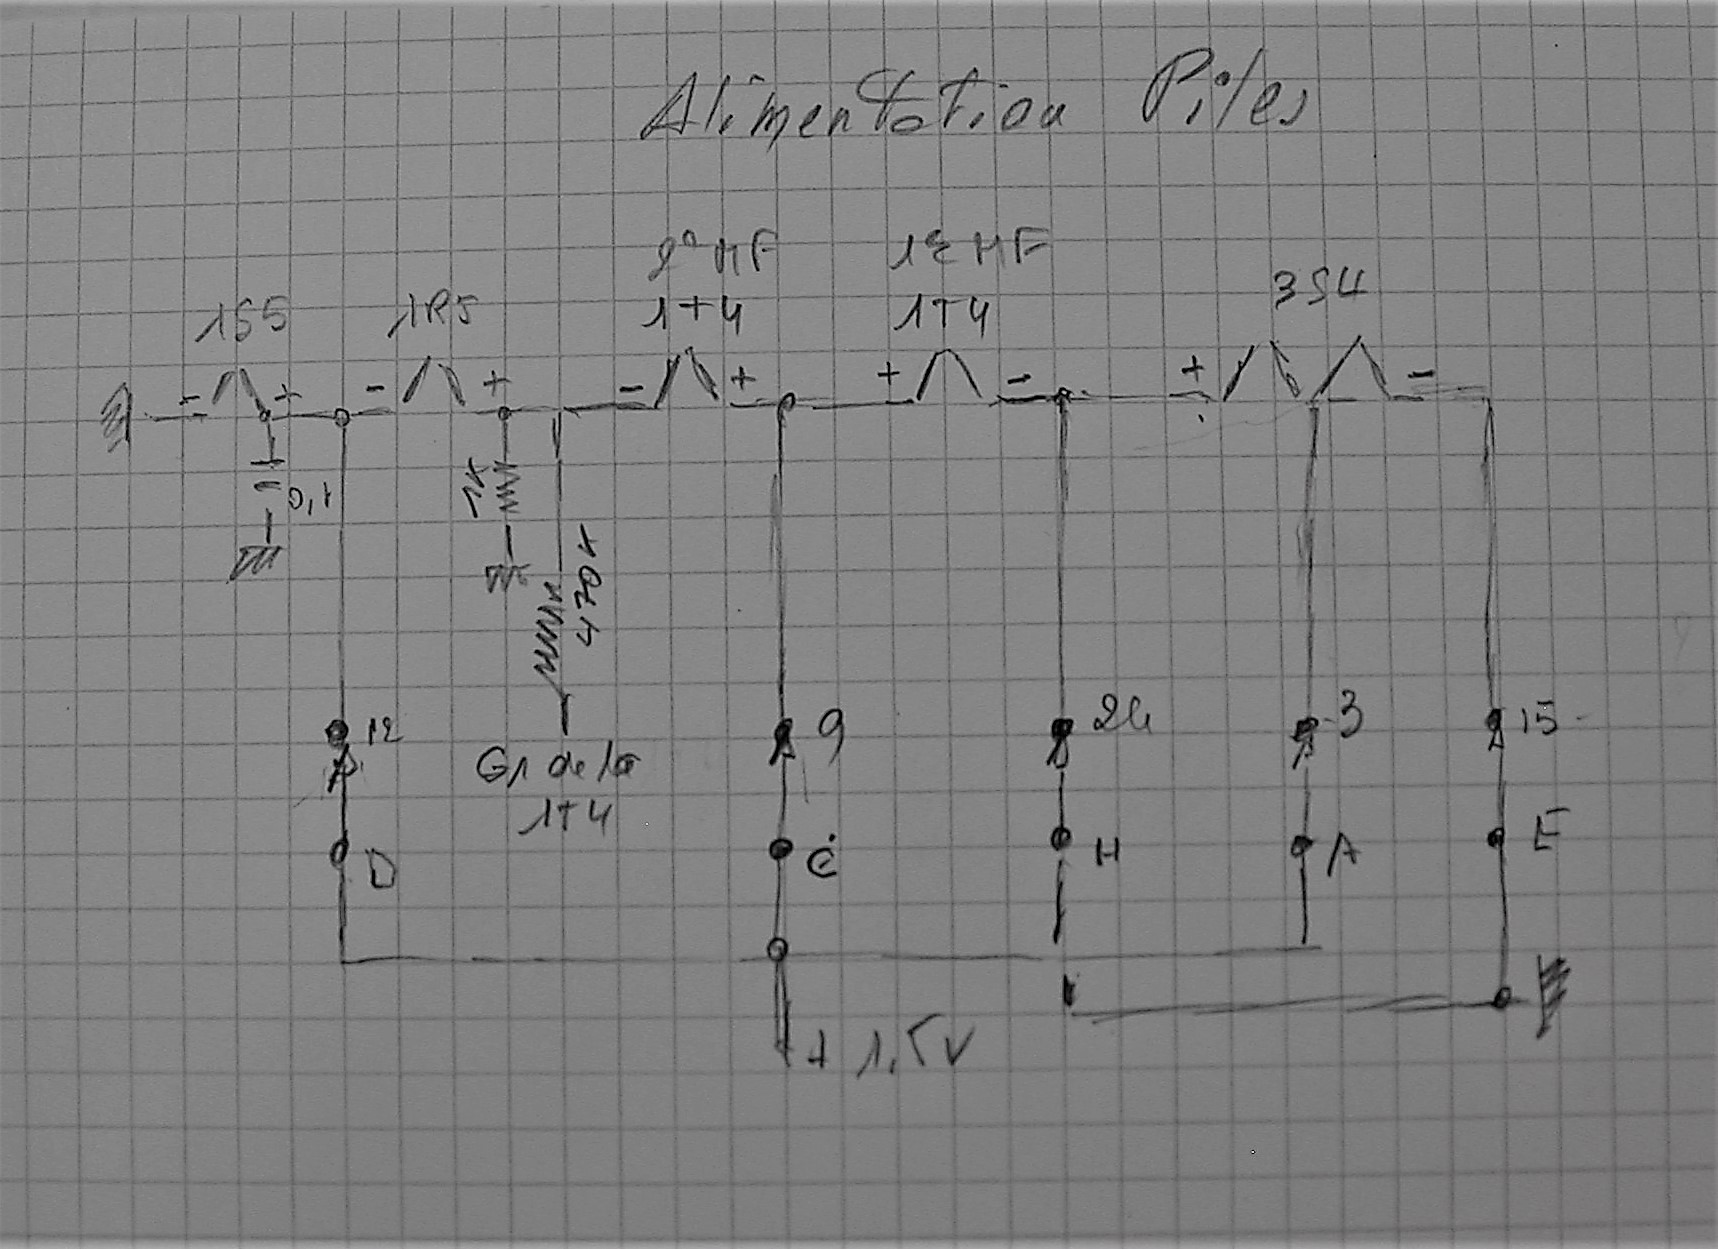 Alimentation Piles
2e MF
1T4
1e MF
1T4
3S4
1S5
1R5
- + - + - + + - + -
0,1
1K
470K
12
9
24
3
15
G1 de la
1T4
D
C
H
A
E
+ 1,5V